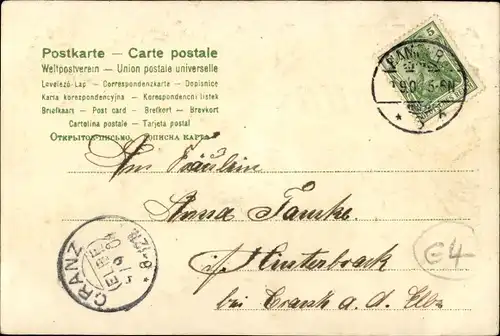 Postkarte — Carte postale
Weltpostverein — Union postale universelle
Levelező-Lap — Correspondenzkarte — Dopisnice
Karta korespondencyjna — Korespondenčni listek
Briefkaart — Post card — Brefkort — Brevkort
Cartolina postale — Tarjeta postal
Открытое письмо
5
5-6N
An Fräulein
Anna
CRANZ
8-12V
ELBE
i/ Hinterbrack
bei Cranz a. d. Elbe
E4